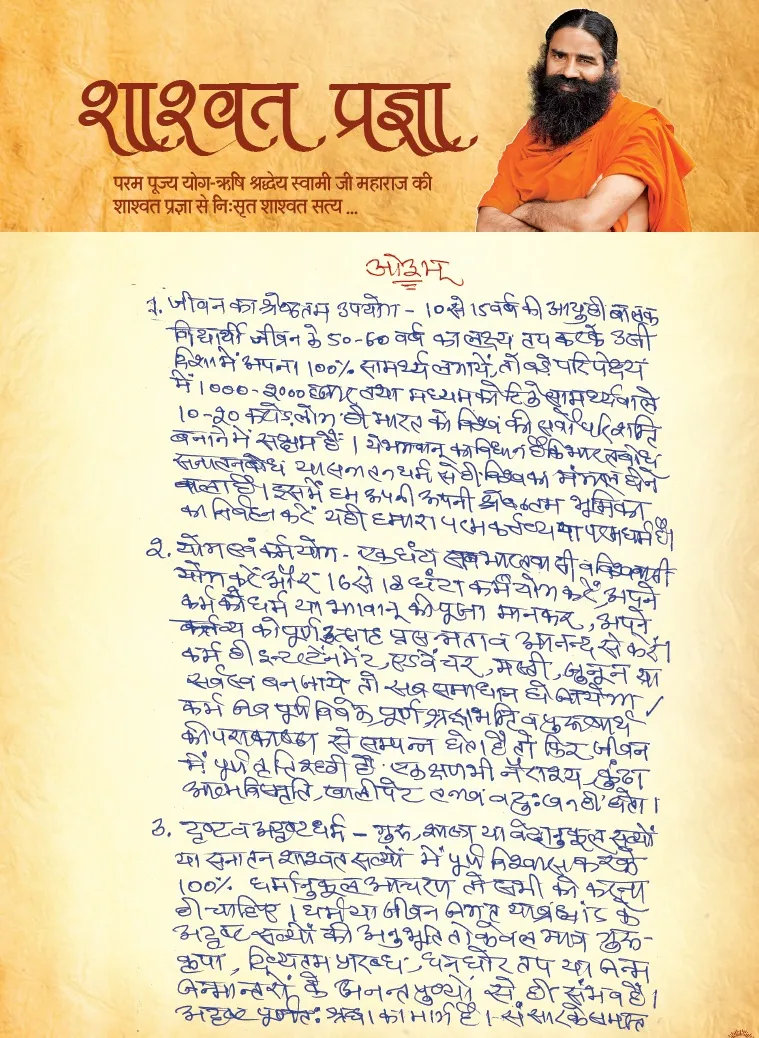 शाश्वत प्रज्ञा
परम पूज्य योग-ऋषि श्रद्धेय स्वामी जी महाराज की
शाश्वत प्रज्ञा से निःसृत शाश्वत सत्य ...
ओ३म्
१. जीवन का श्रेष्ठतम उपयोग - 10 से 15 वर्ष की आयु ही बालक
विद्यार्थी जीवन के 50-60 वर्ष का लक्ष्य तय करके उसी
दिशा में अपना 100% सामर्थ्य लगायें, तो बड़े परिपेक्ष्य
में 1000-2000 हजार तथा मध्यम कोटि के सामर्थ्य वाले
10-20 करोड़ लोग ही भारत को विश्व की सर्वोपरि शक्ति
बनाने में सक्षम हैं। ये भगवान् का विधान है कि भारतबोध
सनातनबोध या सनातन धर्म से ही विश्व का मंगल होने
वाला है। इसमें हम अपनी अपनी श्रेष्ठतम भूमिका
का निर्वहन करें यही हमारा परम कर्त्तव्य या परमधर्म है।
२. योग एवं कर्मयोग - एक घंटा सब भारतवासी व विश्ववासी
योग करें और 16 से 18 घंटा कर्मयोग करें, अपने
कर्म को धर्म या भगवान् की पूजा मानकर, अपने
कर्तव्य को पूर्ण उत्साह प्रसन्नता व आनन्द से करें।
कर्म ही इन्टरटेंनमेंट, एडवेंचर, मस्ती, जुनून या
सर्वस्व बन जाये तो सब समाधान हो जायेगा।
कर्म जब पूर्ण विवेक, पूर्ण श्रद्धा भक्ति व पुरुषार्थ
की पराकाष्ठा से सम्पन्न होता है तो फिर जीवन
में पूर्ण तृप्ति रहती है। एक क्षण भी नैराश्य, कुंठा
आत्मविस्मृति, खालीपेट तनाव व दुःख नहीं होता।
३. दृष्ट व अदृष्ट धर्म - गुरु, शास्त्र या वेदानुकूल सत्यों
या सनातन शाश्वत सत्यों में पूर्ण विश्वास करके
100% धर्मानुकूल आचरण तो सभी को करना
ही चाहिए। धर्म या जीवन जगत् या ब्रह्मांड के
अदृष्ट सत्यों की अनुभूति तो केवल मात्र गुरु-
कृपा, दिव्यतम प्रारब्ध, घनघोर तप या जन्म
जन्मान्तरों के अनन्त पुण्यों से ही संभव है।
अदृष्ट पूर्णतः श्रद्धा का मार्ग है। संसार के समस्त